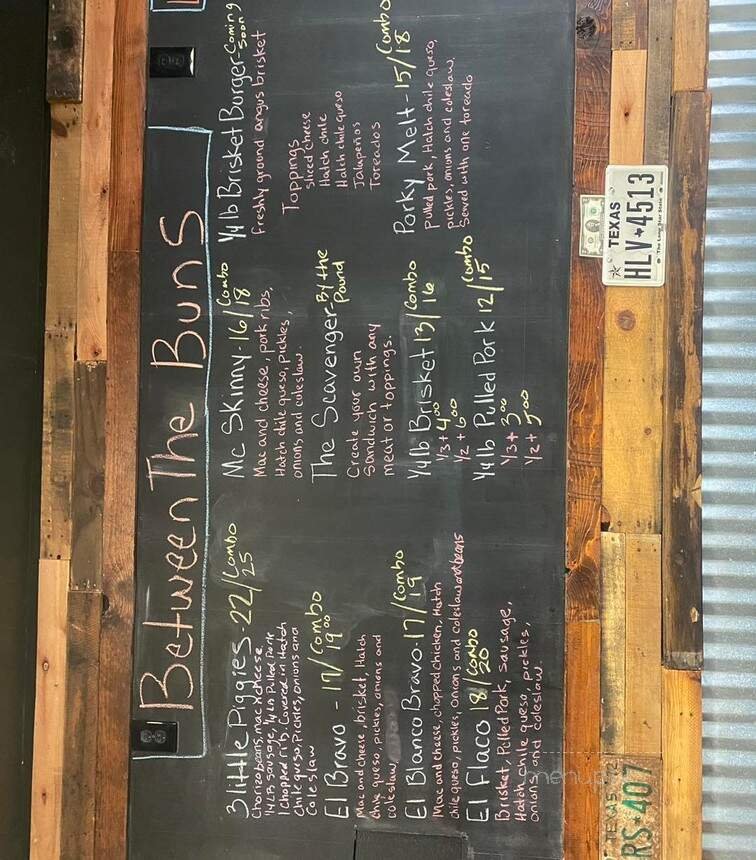 Between The Buns
3 little Piggies - 22/Combo 25
Chorizo beans, mac n cheese,
1/4 LB sausage, 1/4 LB Pulled Pork
1 chopped rib, Covered in Hatch
chile queso, Pickles, onions and
coleslaw
El Bravo - 17/Combo 19⁰⁰
Mac and cheese, brisket, Hatch
chile queso, pickles, onions and
coleslaw
El Blanco Bravo - 17/Combo 19
Mac and cheese, chopped chicken, Hatch
chile queso, pickles, onions and coleslaw and beans
El Flaco 18/Combo 20
Brisket, Pulled Pork, sausage,
Hatch chile queso, pickles,
onions and coleslaw.
Mc Skinny - 16/Combo 18
Mac and cheese, pork ribs,
Hatch chile queso, pickles,
onions and coleslaw.
The Scavenger - By the Pound
Create your own
Sandwich with any
meat or toppings.
1/4 lb Brisket 13/Combo 16
1/3 + 4⁰⁰
1/2 + 6⁰⁰
1/4 lb Pulled Pork 12/Combo 15
1/3 + 3⁰⁰
1/2 + 5⁰⁰
1/4 lb Brisket Burger - Coming Soon
freshly ground angus brisket
Toppings
Sliced cheese
Hatch chile
Hatch chile queso
Jalapeños
Toreados
Porky Melt - 15/Combo 18
Pulled pork, Hatch chile queso,
pickles, onions and coleslaw.
Served with one toreado
TEXAS
RS★407
TEXAS
HLV★4513
The Lone Star State